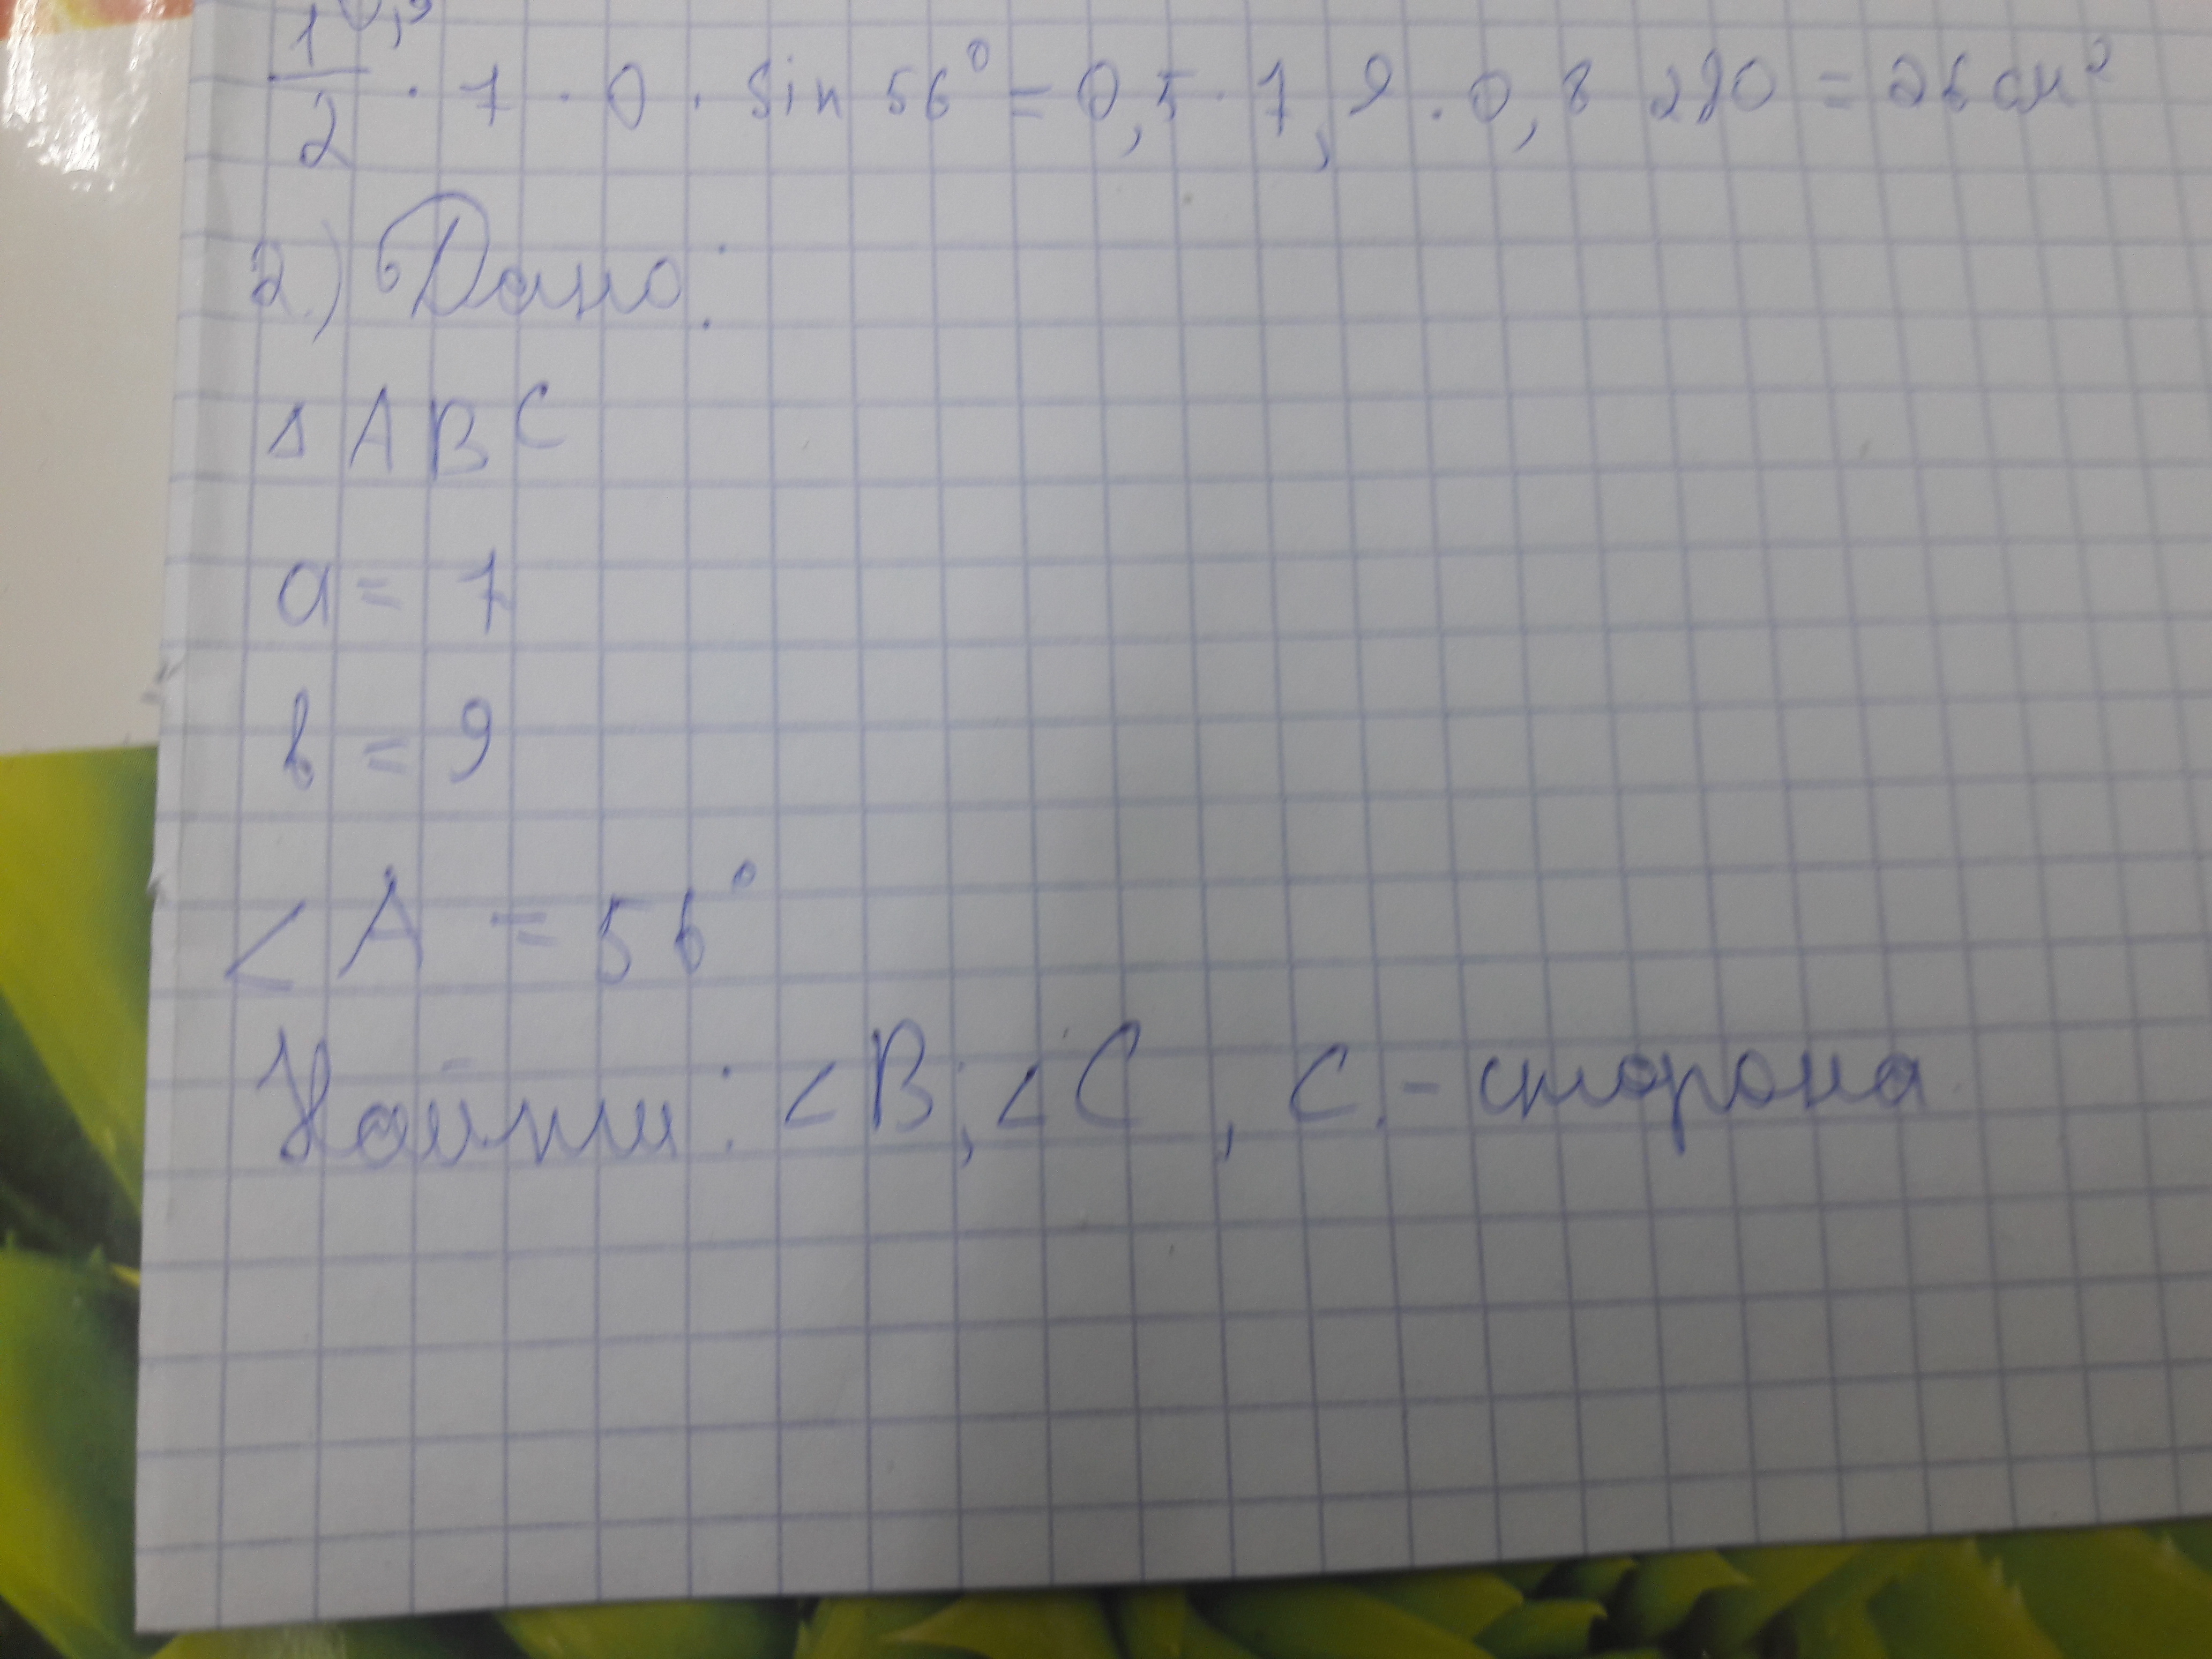 1/2 · 7 · 0 · sin 56° = 0,5 · 7, 9 · 0,8290 = 26 см²
2.) Дано:
Δ A B C
a = 7
b = 9
∠ A = 56°
Найти: ∠B; ∠C, C. - сторона